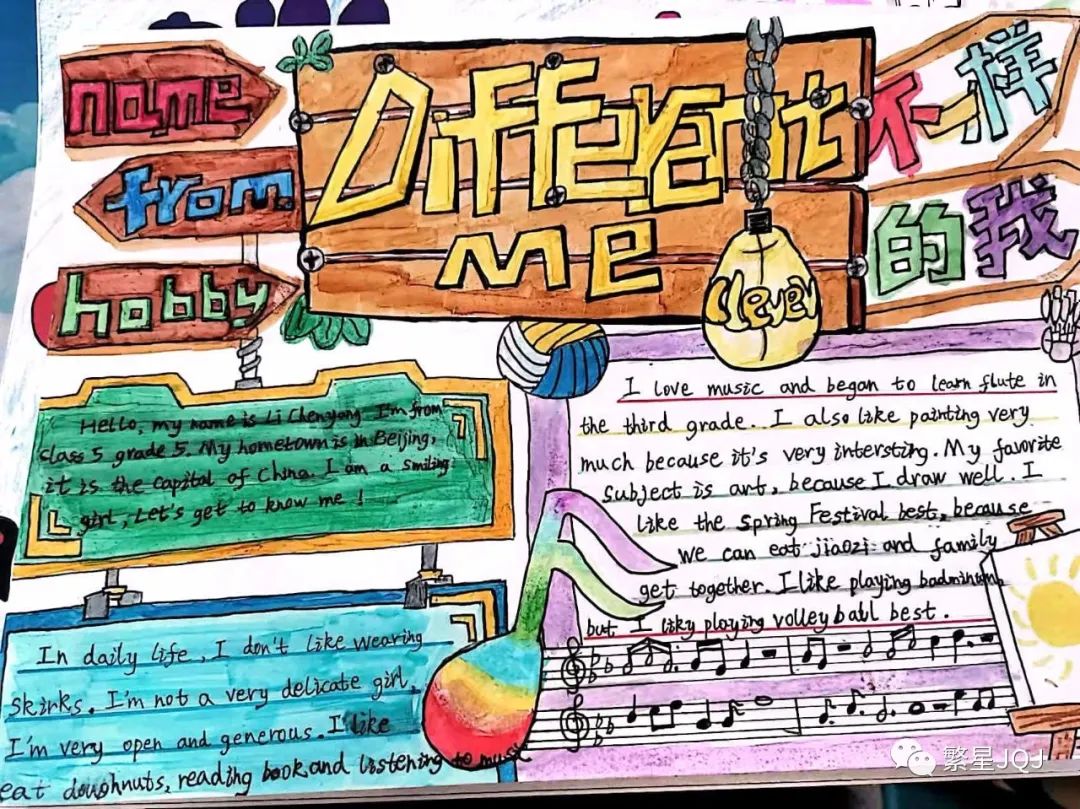 name
from
hobby
Different
me
不一样
的我
Clever
Hello, my name is Li Chenyang I'm from
class 5 grade 5. My hometown is in Beijing,
it is the capital of China. I am a smiling
girl, Let's get to know me!
In daily life, I don't like wearing
skirks. I'm not a very delicate girl.
I'm very open and generous. I like
eat doughnuts, reading book,and listening to music
I love music and began to learn flute in
the third grade. I also like painting very
much because it's very intersting. My favorite
subject is art, because I draw well. I
like the Spring Festival best, because
we can eat jiaozi and family
get together. I like playing badminton,
but I liky playing volleyball best.
繁星JQJ